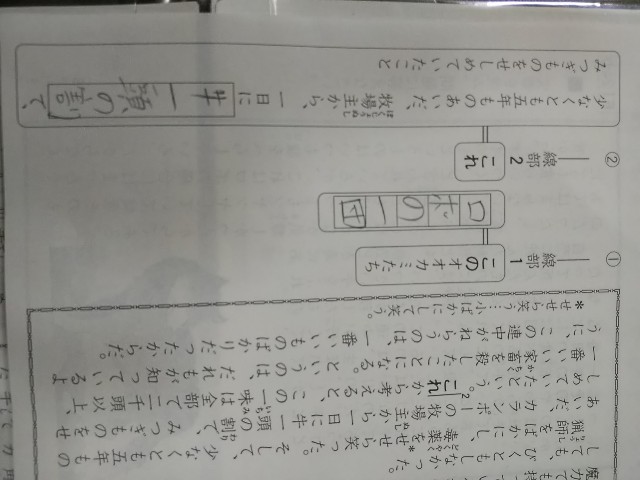 魔力でも持
しても、びくともしなかった。
猟師をばかにし、毒薬をせせら笑った。そして、少なくとも五年もの
あいだ、カランポーの牧場主から一日に牛一頭の割で、みつぎものをせ
しめていたという。これから考えると、この一味は全部で二千頭以上、
一番いい家畜を殺したことになる。というのは、だれもが知っているよ
うに、この連中がねらうのは、一番いいものばかりだったからだ。
*せせら笑う…小ばかにして笑う。
① ――線部1 このオオカミたち
ロボの一団
② ――線部2 これ
少なくとも五年ものあいだ、牧場主から、一日に牛一頭の割で、
みつぎものをせしめていたこと